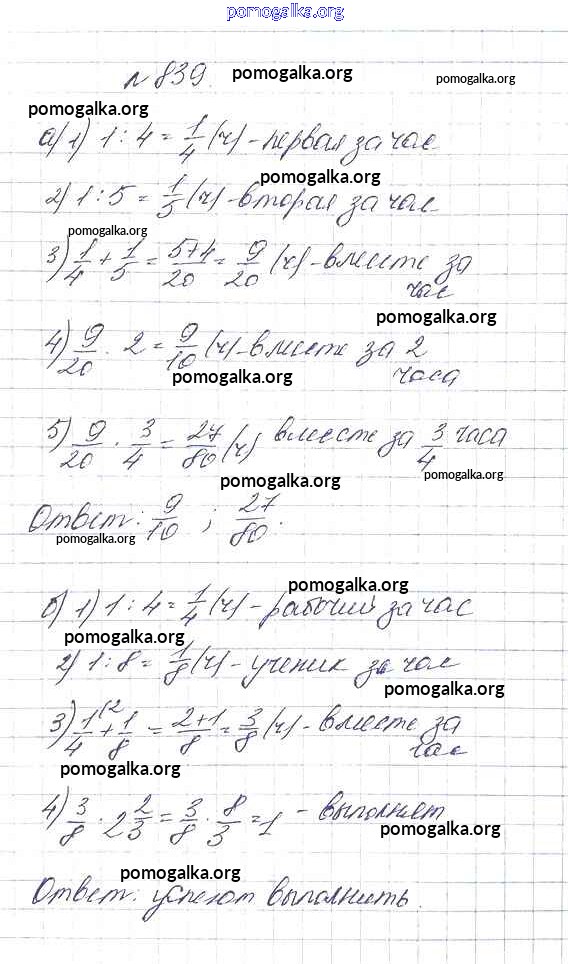 pomogalka.org
№ 839. pomogalka.org pomogalka.org
pomogalka.org
а) 1) 1 : 4 = 1/4 (ч) - первая за час
pomogalka.org
2) 1 : 5 = 1/5 (ч) - вторая за час
pomogalka.org
3) 1/4 + 1/5 = 5+4/20 = 9/20 (ч) - вместе за
час
pomogalka.org
4) 9/20 · 2 = 9/10 (ч) - вместе за 2
часа
pomogalka.org
5) 9/20 · 3/4 = 27/80 (ч) вместе за 3/4 часа
pomogalka.org
pomogalka.org
Ответ: 9/10 ; 27/80.
pomogalka.org
pomogalka.org
б) 1) 1 : 4 = 1/4 (ч) - рабочий за час
pomogalka.org
2) 1 : 8 = 1/8 (ч) - ученик за час
pomogalka.org
3) 1/4 (2 + 1/8 = 2+1/8 = 3/8 (ч) - вместе за
час
pomogalka.org
4) 3/8 · 2 2/3 = 3/8 · 8/3 = 1 - выполнят
pomogalka.org
pomogalka.org
Ответ: успеют выполнить.